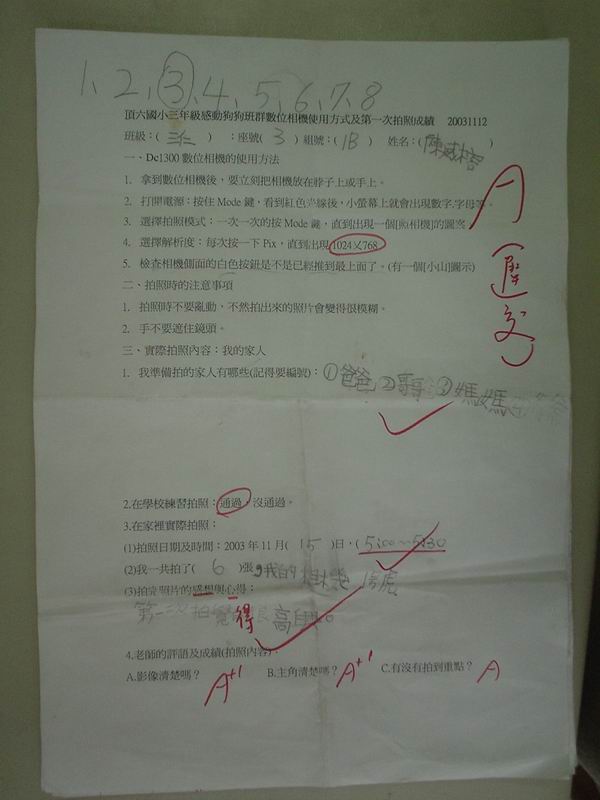 1、2、③、4、5、6、7、8
頂六國小三年級感動狗狗班群數位相機使用方式及第一次拍照成績 20031112
班級：( 三仁 ) ：座號( 3 ) 組號：( 1B ) 姓名：( 陳 )
一、Dc1300 數位相機的使用方法
1. 拿到數位相機後，要立刻把相機放在脖子上或手上。
A
2. 打開電源：按住 Mode 鍵，看到紅色亮線後，小螢幕上就會出現數字.字母等。
3. 選擇拍照模式：一次一次的按 Mode 鍵，直到出現一個[照相機]的圖案
4. 選擇解析度：每次按一下 Pix，直到出現 1024×768
(遲交)
5. 檢查相機側面的白色按鈕是不是已經推到最上面了。(有一個[小山]圖示)
二、拍照時的注意事項
1. 拍照時不要亂動，不然拍出來的照片會變得很模糊。
2. 手不要遮住鏡頭。
三、實際拍照內容：我的家人
1. 我準備拍的家人有哪些(記得要編號)：①爸爸②哥哥③媽媽
2.在學校練習拍照：通過，沒通過。
3.在家裡實際拍照：
(1)拍照日期及時間：2003 年 11 月( 15 )日，( 5:00～5:30
(2)我一共拍了( 6 )張，我的相機 號
(3)拍完照片的感想與心得：
第一次拍覺得很高興。
4.老師的評語及成績(拍照內容)：
A.影像清楚嗎？ A+1 B.主角清楚嗎？ A+1 C.有沒有拍到重點？ A